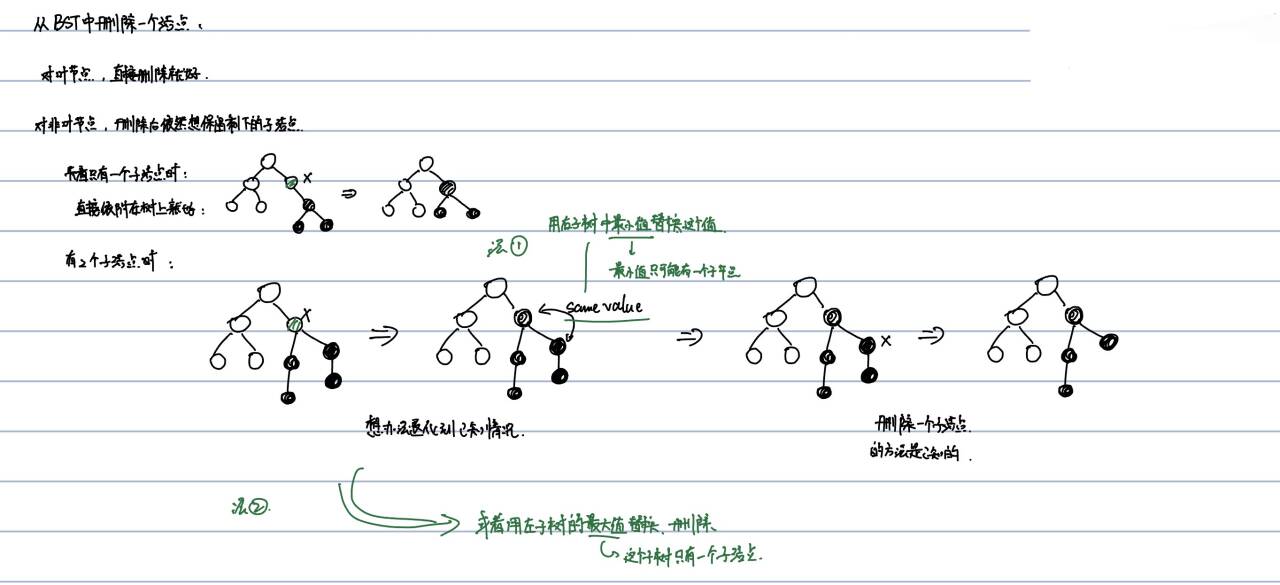 从BST中删除一个结点：
对叶节点，直接删除就好.
对非叶节点，删除后依然想保留剩下的子结点.
只有一个子结点时：
直接依附在树上新的：
x
⇒
用右子树中最小值替换这个值.
法①
↓
最小值只可能有一个子节点
有2个子结点时：
x
same value
⇒
⇒
x
⇒
想办法退化到已知情况.
删除一个子结点
的方法是已知的.
法②.
或者用左子树的最大值替换、删除、
这个子树只有一个子结点.